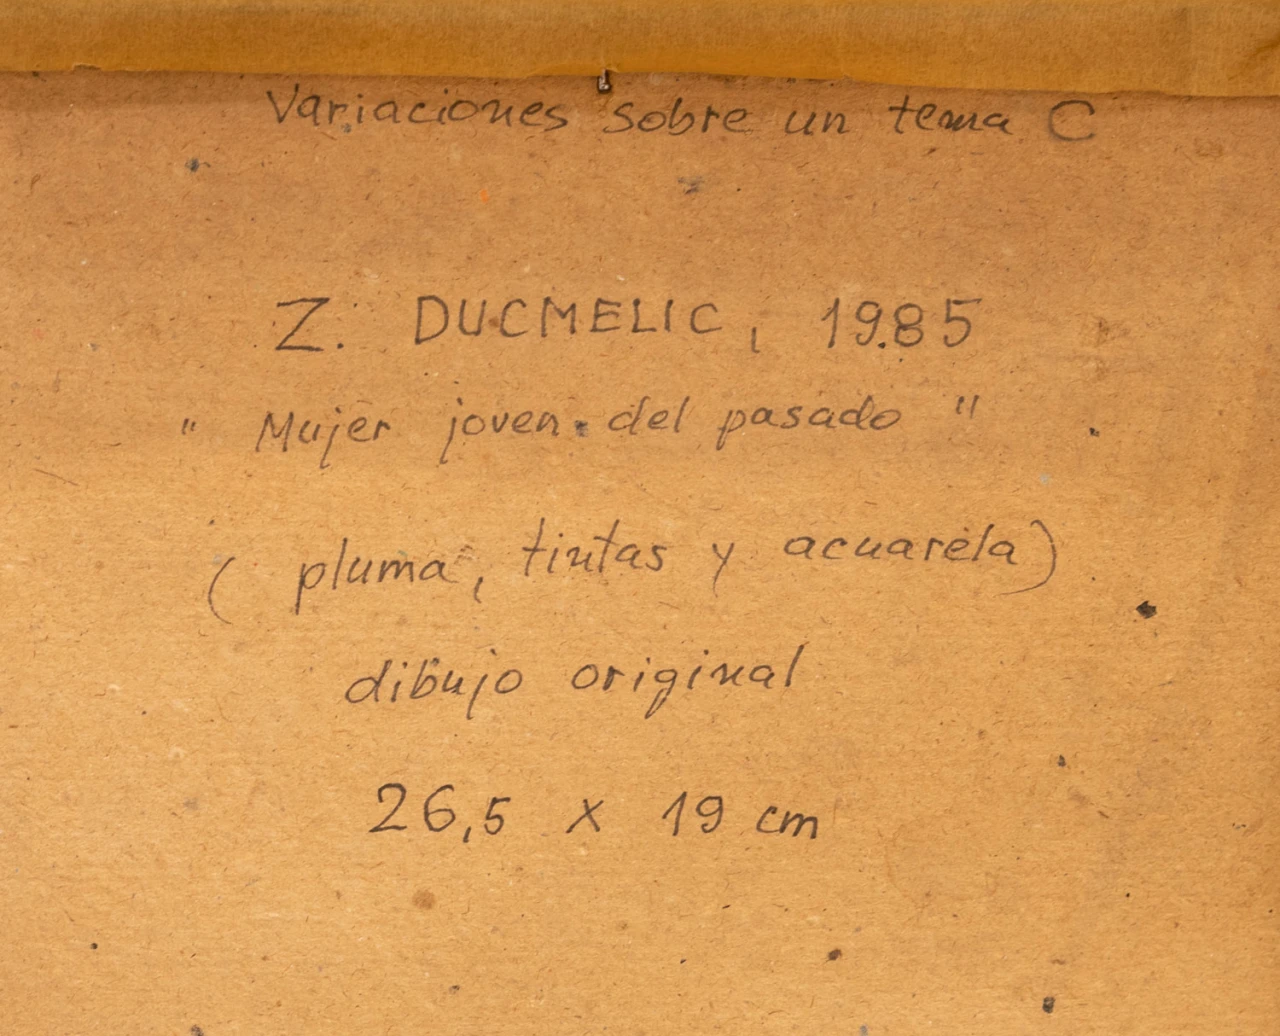 Variaciones sobre un tema C
Z. DUCMELIC, 1985
" Mujer joven del pasado "
( pluma, tintas y acuarela)
dibujo original
26,5 x 19 cm